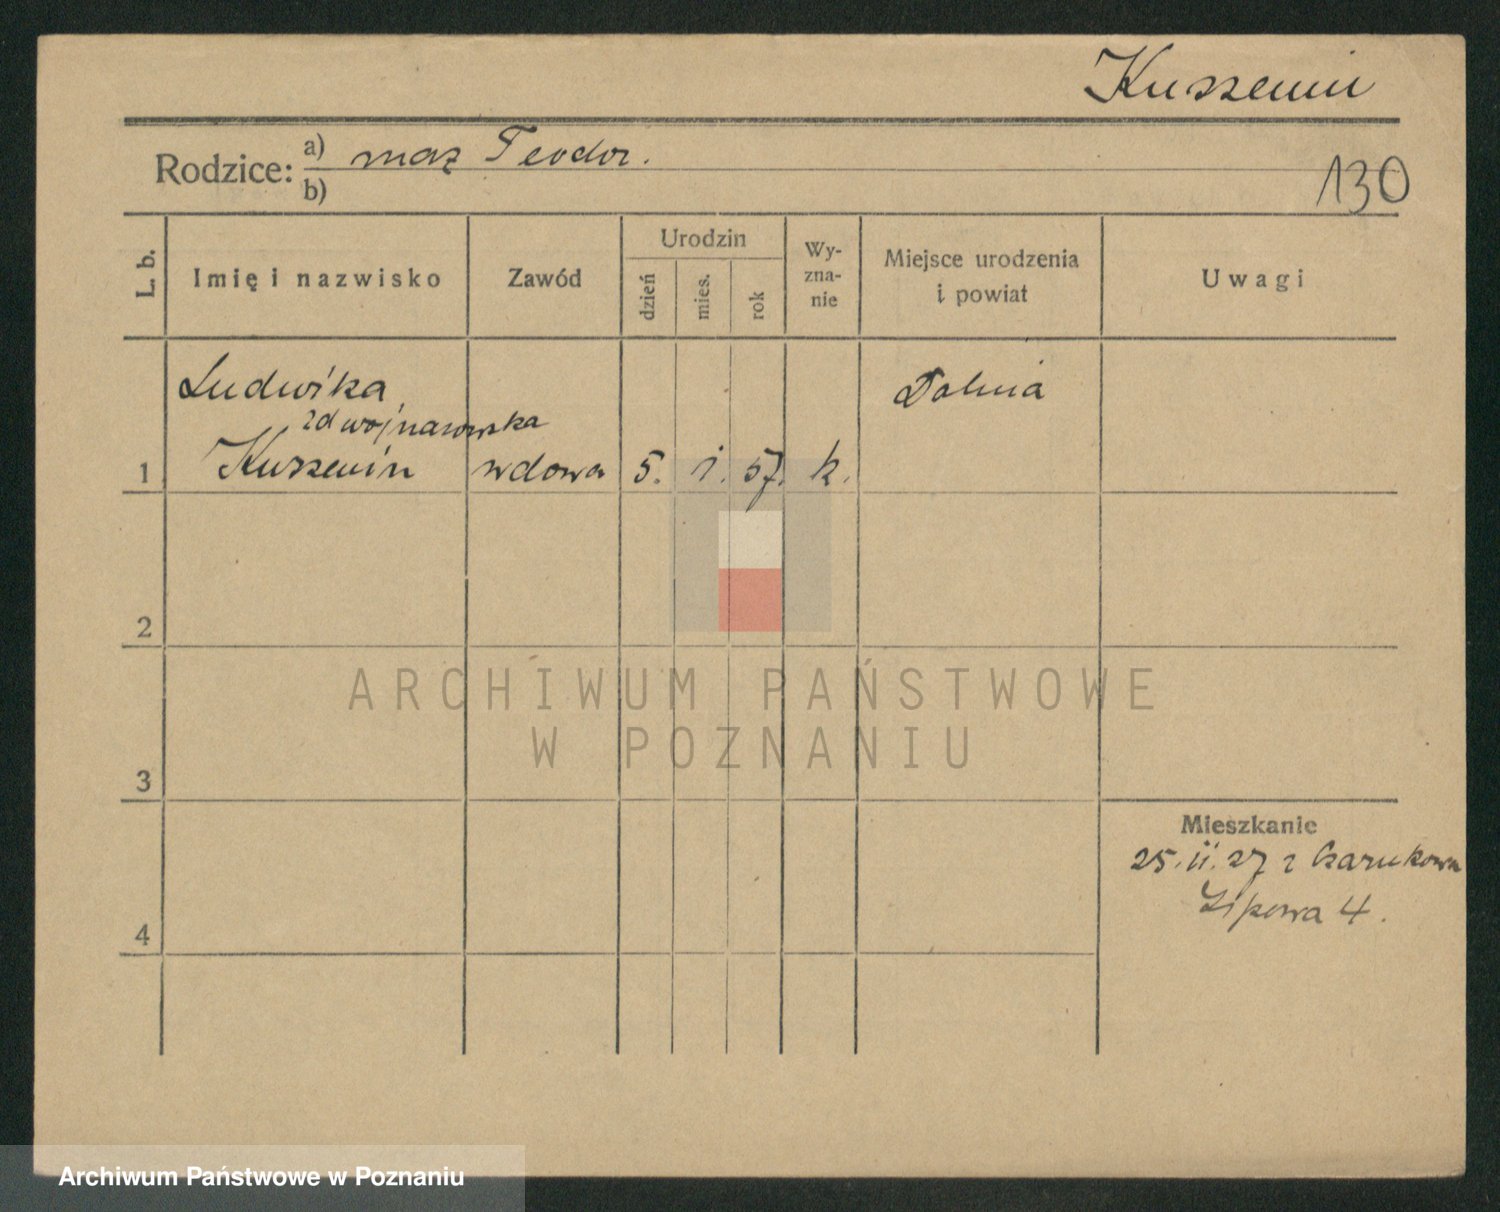 Kuszemin
Rodzice: a) mąż Teodor.
b)
130
L. b.
Imię i nazwisko
Zawód
Urodzin
dzień
mies.
rok
Wy-
zna-
nie
Miejsce urodzenia
i powiat
Uwagi
Ludwika
zd wojnarowska
1 Kuszewin wdowa 5. 1. 57. k.
2
3
4
Mieszkanie
25. II. 27 z Czarnkowa
Lipowa 4.
ARCHIWUM PAŃSTWOWE
W POZNANIU
Archiwum Państwowe w Poznaniu